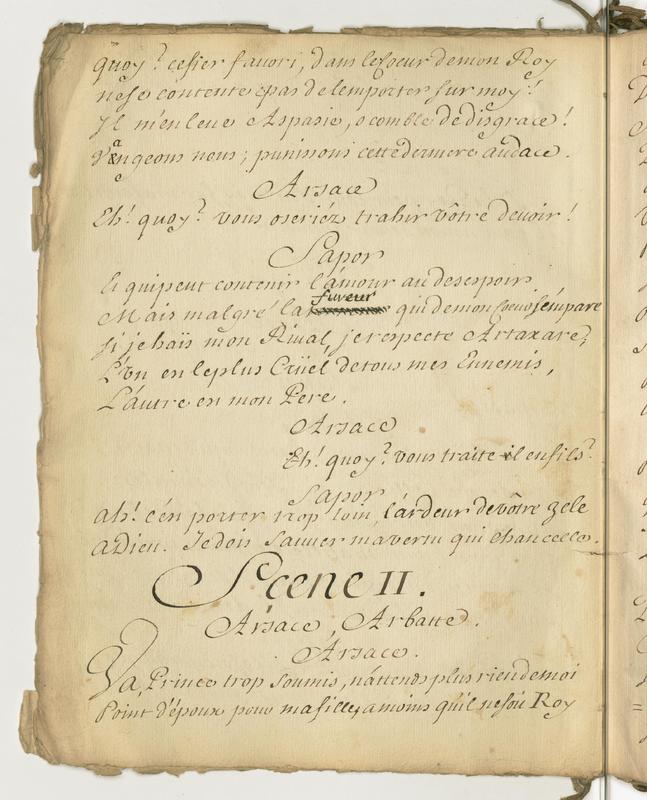 quoy? ce fier favori, dans le Coeur de mon Roy
ne se contente pas de l'emporter sur moy?
Il m'enleve Aspasie, o comble de disgrace!
Vangeons nous; punissons cette derniere audace.
Arsace
Eh! quoy? vous oseriéz trahir vôtre devoir!
Sapor
Et qui peut contenir l'amour au desespoir
Mais malgré la fureur qui de mon Coeur s'émpare
si je haïs mon Rival, je respecte Artaxare;
L'un en le plus Crüel de tous mes Ennemis,
L'autre en mon Pere.
Arsace
Eh! quoy? vous traite il en fils?
Sapor
ah! c'én porter trop loin, l'ardeur de vôtre zele
adieu. Je dois sauver ma vertu qui chancelle.
Scene II.
Arsace, Arbatte.
Arsace.
Va, Prince trop soumis, n'attends plus rien de moi
Point d'époux pour ma fille, a moins qu'il ne soit Roy